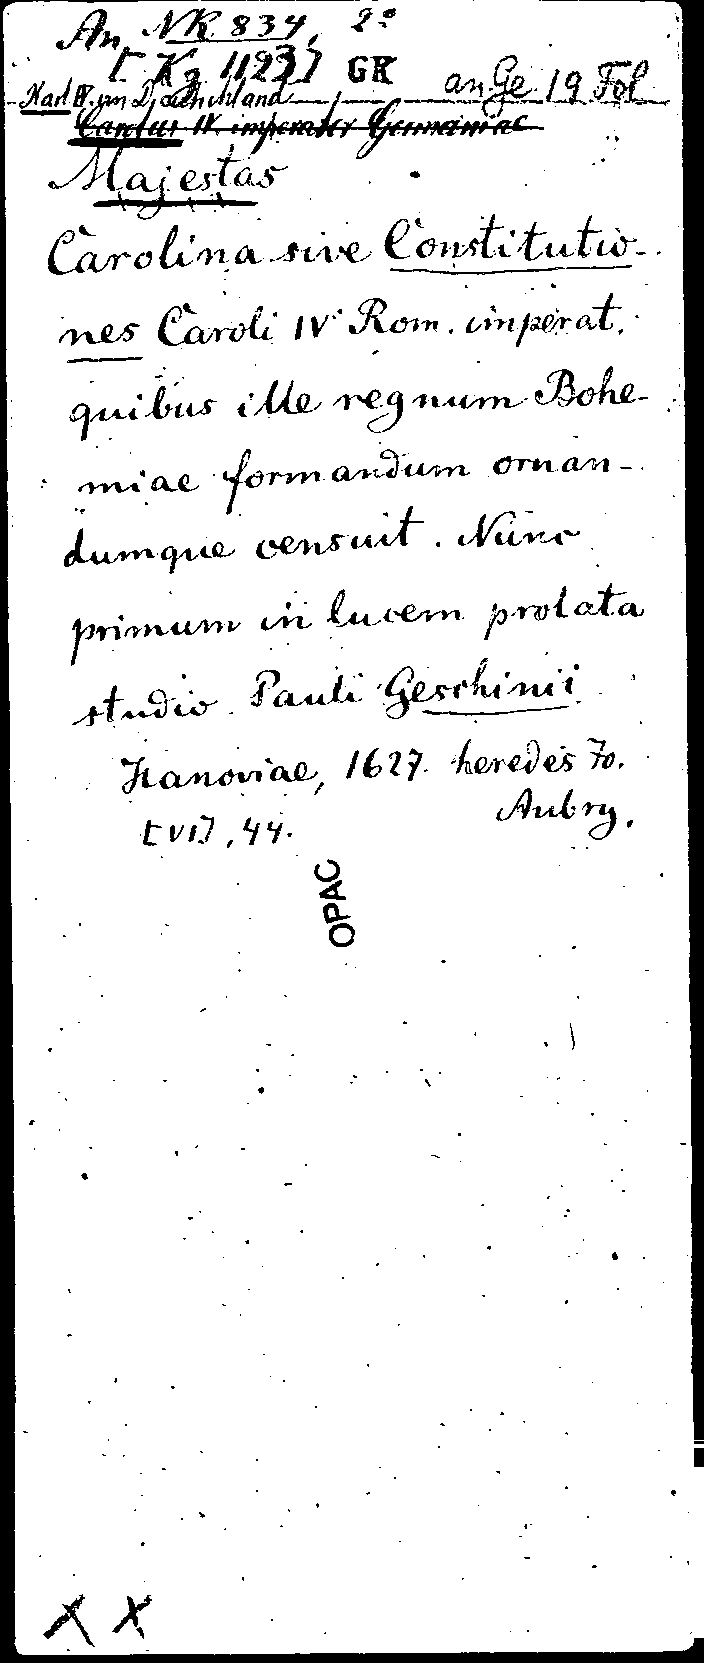 An NK 834, 2º
[Kg 1123] GK
Karl IV. von Deutschland an Ge 19 Fol
Carolus IV. imperator Germaniae
Majestas
Carolina sive Constitutio-
nes Caroli IV Rom. imperat.
quibus ille regnum Bohe-
miae formandum ornan-
dumque censuit. Nunc
primum in lucem prolata
studio Pauli Geschinii
Hanoviae, 1627. heredes Jo.
Aubry.
[VI], 44.
OPAC
X X